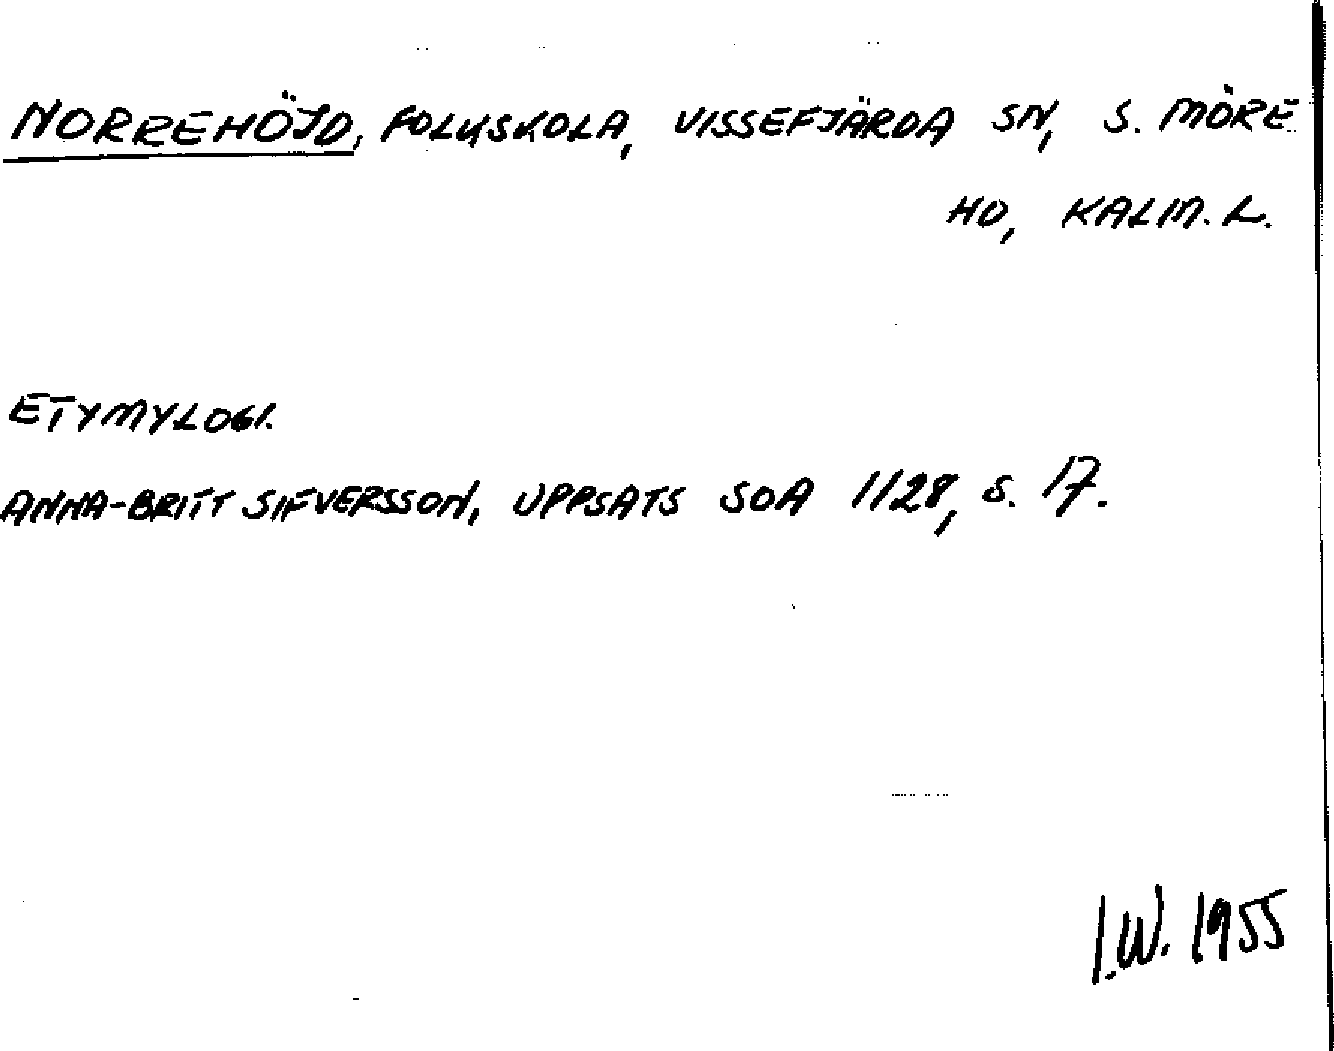 NORREHÖJD, FOLKSKOLA, VISSEFJÄRDA SN, S. MÖRE
HD, KALM. L.
ETYMYLOGI.
ANNA-BRITT SIFVERSSON, UPPSATS SOA 1128, S. 17.
I.W. 1955